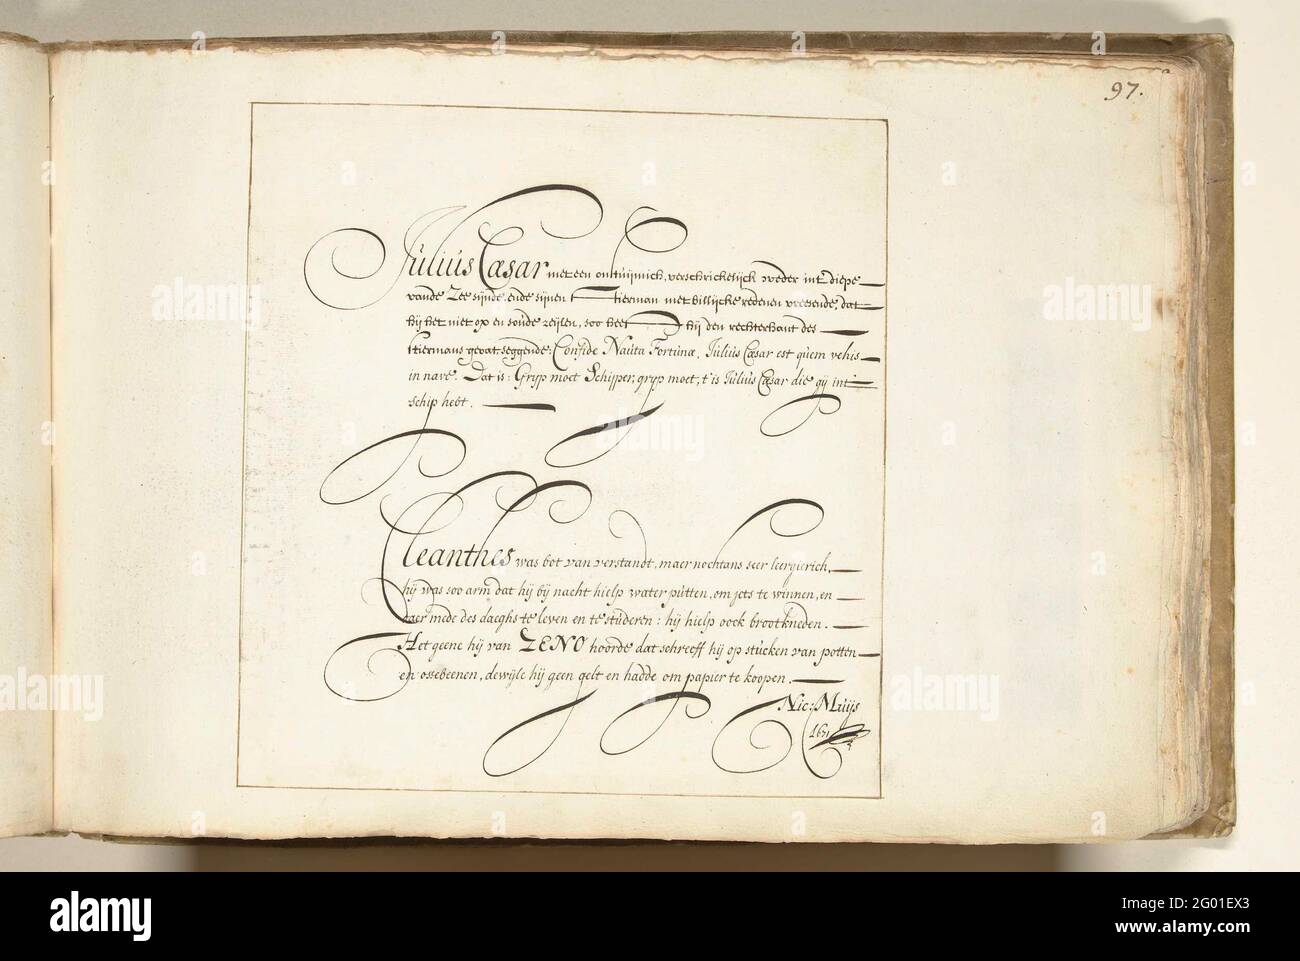 97.
Julius Cæsar met een onstuijmich, verschrickelijck weder int diepe
vande Zee sijnde, ende sijnen stierman met billijcke redenen vreesende, dat
hij het niet op en soude zeijlen, soo heeft hij den rechterhant des
stiermans gevat, seggende: Confide Nauta Fortunæ, Julius Cæsar est quem vehis
in nave. Dat is: Gryp moet Schipper, gryp moet, t'is Julius Cæsar die gij int
schip hebt.
Cleanthes was bot van verstandt, maer nochtans seer leergierich,
hij was soo arm dat hij bij nacht hielp water putten, om jets te winnen, en
daer mede des daeghs te leven en te studeren: hij hielp oock brootkneden.
Het geene hij van ZENO hoorde dat schreeff hij op stucken van potten
en ossebeenen, dewijle hij geen gelt en hadde om papier te koopen.
Nic: Muijs
1671
alamy
alamy
Image ID: 2G01EX3
www.alamy.com